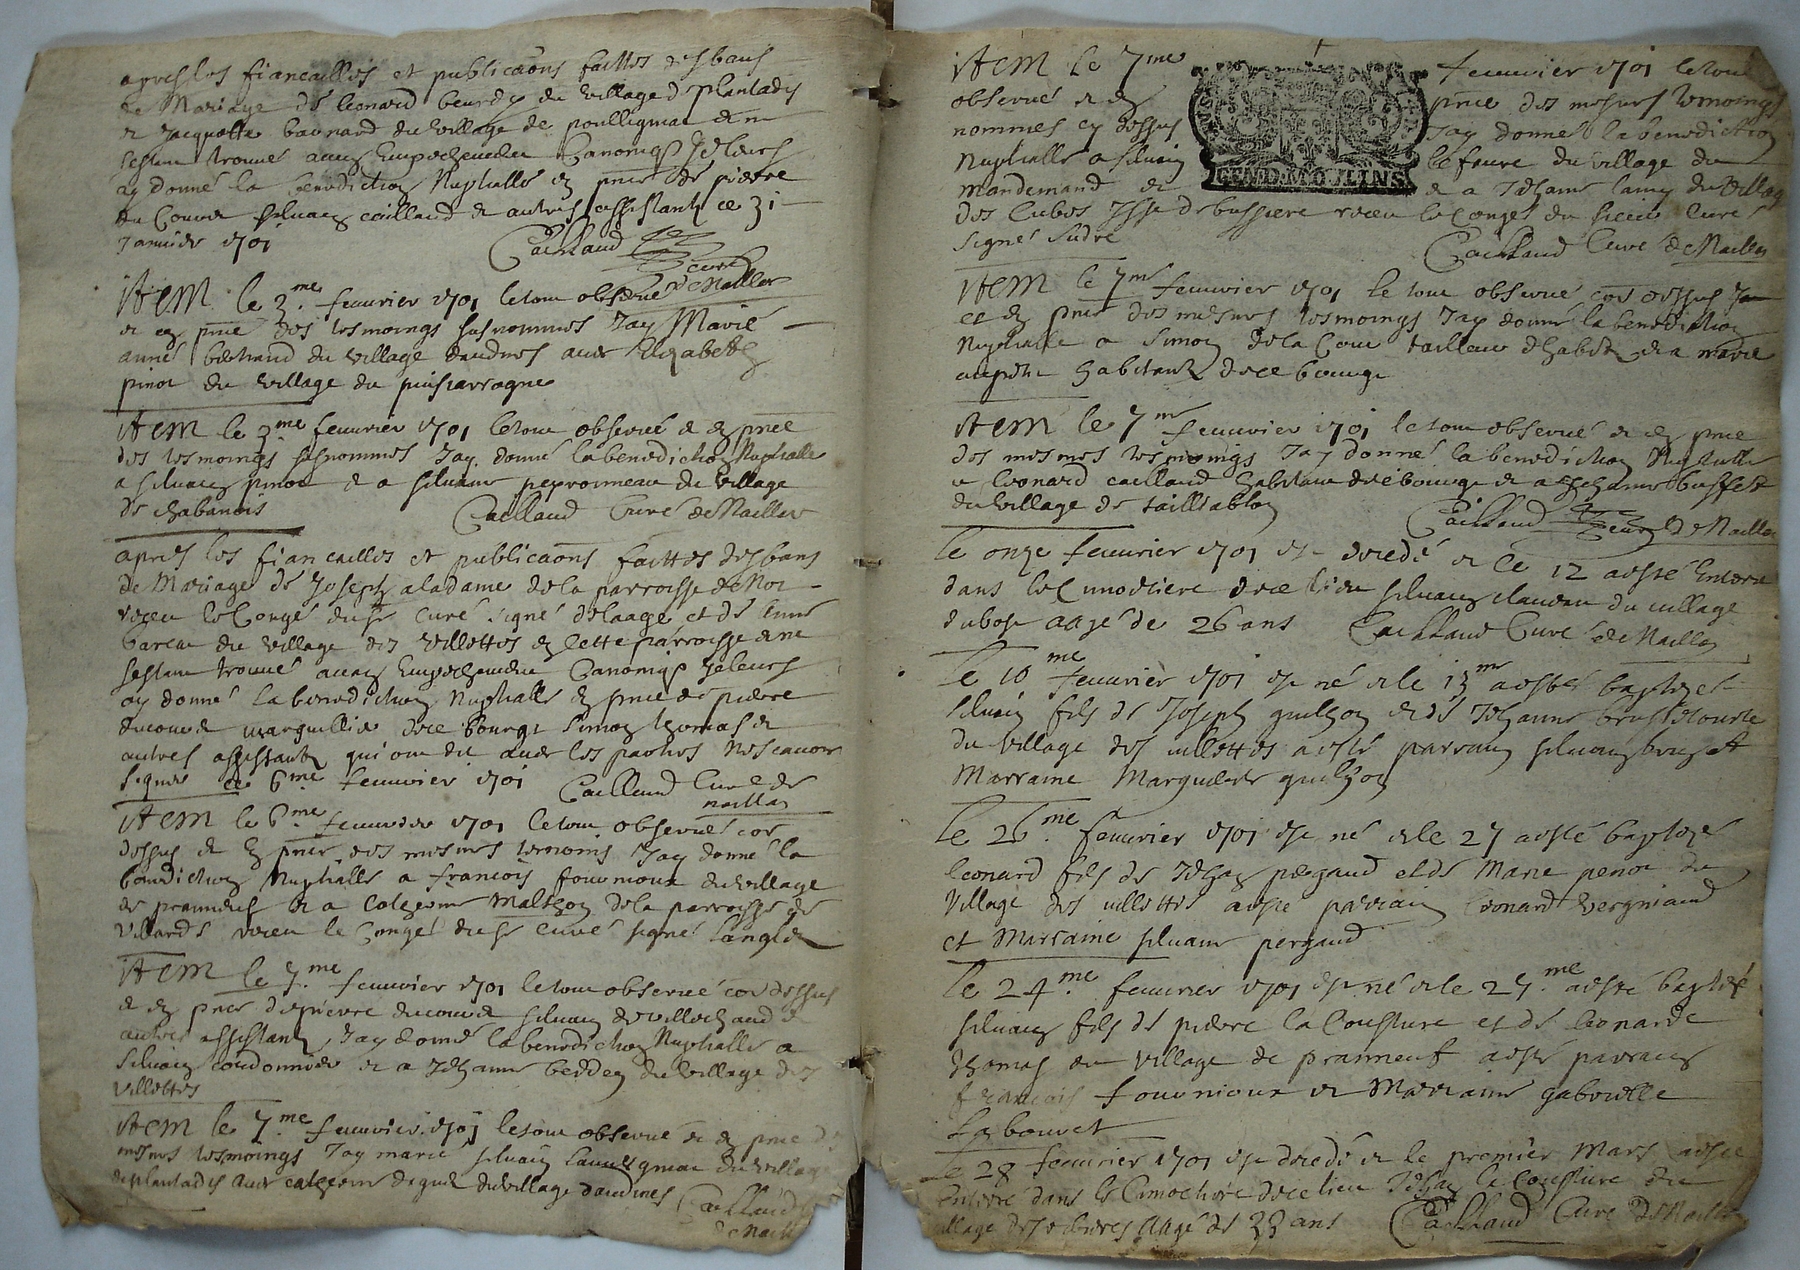 apres les fiancailles et publicaons faittes des bans
de Mariage de leonard beurdy du village d plantadis
et Jacquette baunard du village de poulligniat et ne
sestant trouvé aucun Empechement Canonique Je leurs
ay donné la benediction Nuptialle en pnce de pierre
du Couvet silvain caillaud et autres assistants ce 31
Janvier 1701 Caillaud curé
de Naillat
Item le 3.me feuvrier 1701 le tout observé
et en pnce des tesmoings susnommes Jay Marié
anné bertrand du village daudnes avec Elizabeth
pinot du village du puisarragne
Item le 3.me feuvrier 1701 le tout observé et en pnce
des tesmoings susnommes Jay donné la benediction Nuptialle
a silvain pinot et a silvaine peyronneau du village
de chabanois Caillaud Curé de Naillat
apres les fiancailles et publicaons faittes des bans
de Mariage de Joseph aladame de la parroisse de Not
veeu le Congé du sr Curé signé delaage et de
bareau du village des villettes en cette parroisse et ne
sestant trouvé aucun Empechement Canonique Je leurs
ay donné la benediction Nuptialle en pnce de pierre
ducouret marguillier de ce bourg Simon thomas et
autres assistants qui ont dit avec les parties ne scavoir
signer ce 6.me feuvrier 1701 Caillaud Curé de
naillat
Item le 6.me feuvrier 1701 le tout observé cy
dessus et en pnce des mesmes temoins Jay donné la
benediction Nuptialle a francois fournioux du village
de pranneuf et a Catherine Malthon de la parroisse de
Villards veeu le Congé du sr Curé signé langlois
Item le 7.me feuvrier 1701 le tout observé cy dessus
et en pnce de pierre ducouret silvain devillechaud et
autres assistants, Jay donné la benediction Nuptialle a
silvain courdonnier et a Jehanne du village des
Villettes
Item le 7.me feuvrier 1701 le tout observé et en pnce d
mesmes tesmoings Jay marié silvain du village
de plantadis avec catherine du village daudnes Caillaud
de Naill
Item le 7me feuvrier 1701 le tout
observé et en pnce des mesmes temoings
nommes cy dessus Jay donné la benediction
Nuptialle a silvain lefaure du village du
GEN.DE.MOULINS
mandemand et et a Jehanne lamy du village
des Cubes Jsse de bussiere veeu le Congé du sieur Curé
signé sudre Caillaud Curé de Naillat
Item le 7me feuvrier 1701 le tout observé cy dessus
et en pnce des mesmes tesmoings Jay donné la benediction
Nuptialle a Simon de la Cour tailleur dhabits et a marie
habitants de ce bourg
Item le 7me feuvrier 1701 le tout observé et en pnce
des mesmes tesmoings Jay donné la benediction Nuptialle
a Leonard caillaud habitant de ce bourg et a Jehanne
du village de tailliablon Caillaud curé de Naillat
le onze feuvrier 1701 est decedé et le 12 a esté Enterré
dans le Cimetiere de ce lieu silvain clauon du village
dubost aagé de 26 ans Caillaud Curé de Naillat
Le 10me feuvrier 1701 est né et le 13me a esté baptizé
silvain fils de Joseph guilhon et de Jehanne
du village des villettes a esté parrain silvain et
Marraine Marguerite guilhon
Le 26.me feuvrier 1701 est né et le 27 a esté baptizé
leonard fils de Jehan pergaud et de Marie penot du
Village des villettes a esté parrain Leonard vergniaud
et Marraine silvaine pergaud
Le 24.me feuvrier 1701 est né et le 27.me a esté baptizé
silvain fils de pierre la Cousture et de leonarde
thomas du village de pranneuf a esté parrain
francois fournioux et Marraine gabrielle
labouret
Le 28 feuvrier 1701 est decedé et le premier Mars a esté
Enterré dans le Cimetiere de ce lieu Jehan la Cousture du
village des aagé de 33 ans Caillaud Curé de Naillat